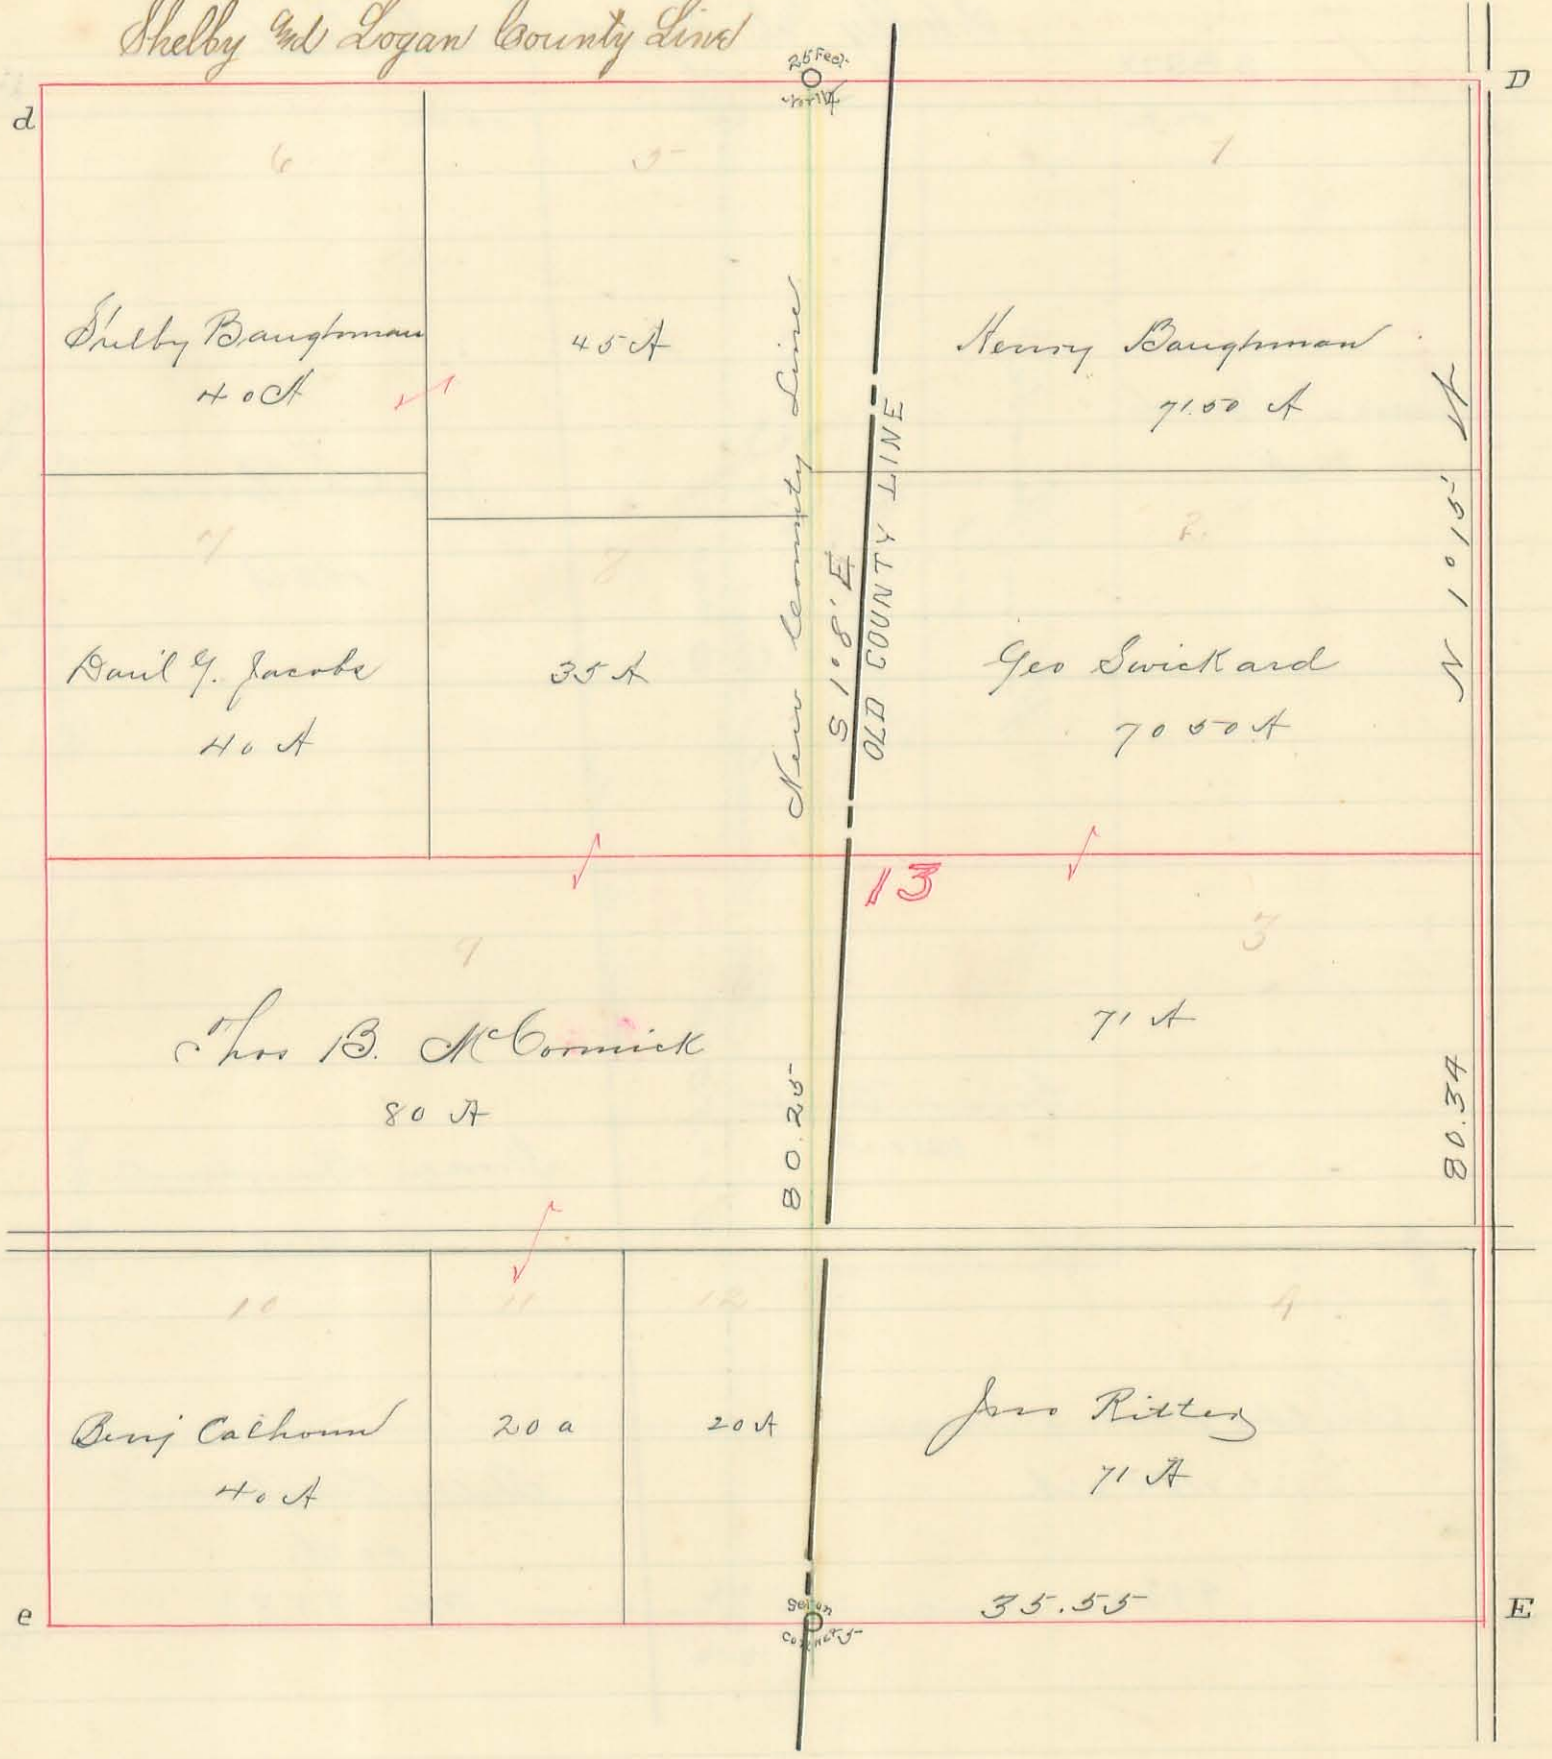 Shelby and Logan County Line
25 Feet
North
d
D
6
5
1
Shelby Baughman
40 A
45 A
Henry Baughman
71.50 A
New County Line
S 1° 8' E
OLD COUNTY LINE
N 1° 15' W
7
8
2
Danl G. Jacobs
40 A
35 A
Geo Swickard
70 50 A
13
9
3
Thos B. McCormick
80 A
71 A
80.25
80.34
10
11
12
4
Benj Calhoun
40 A
20 a
20 A
Jno Ritter
71 A
35.55
Set on
Corners
e
E